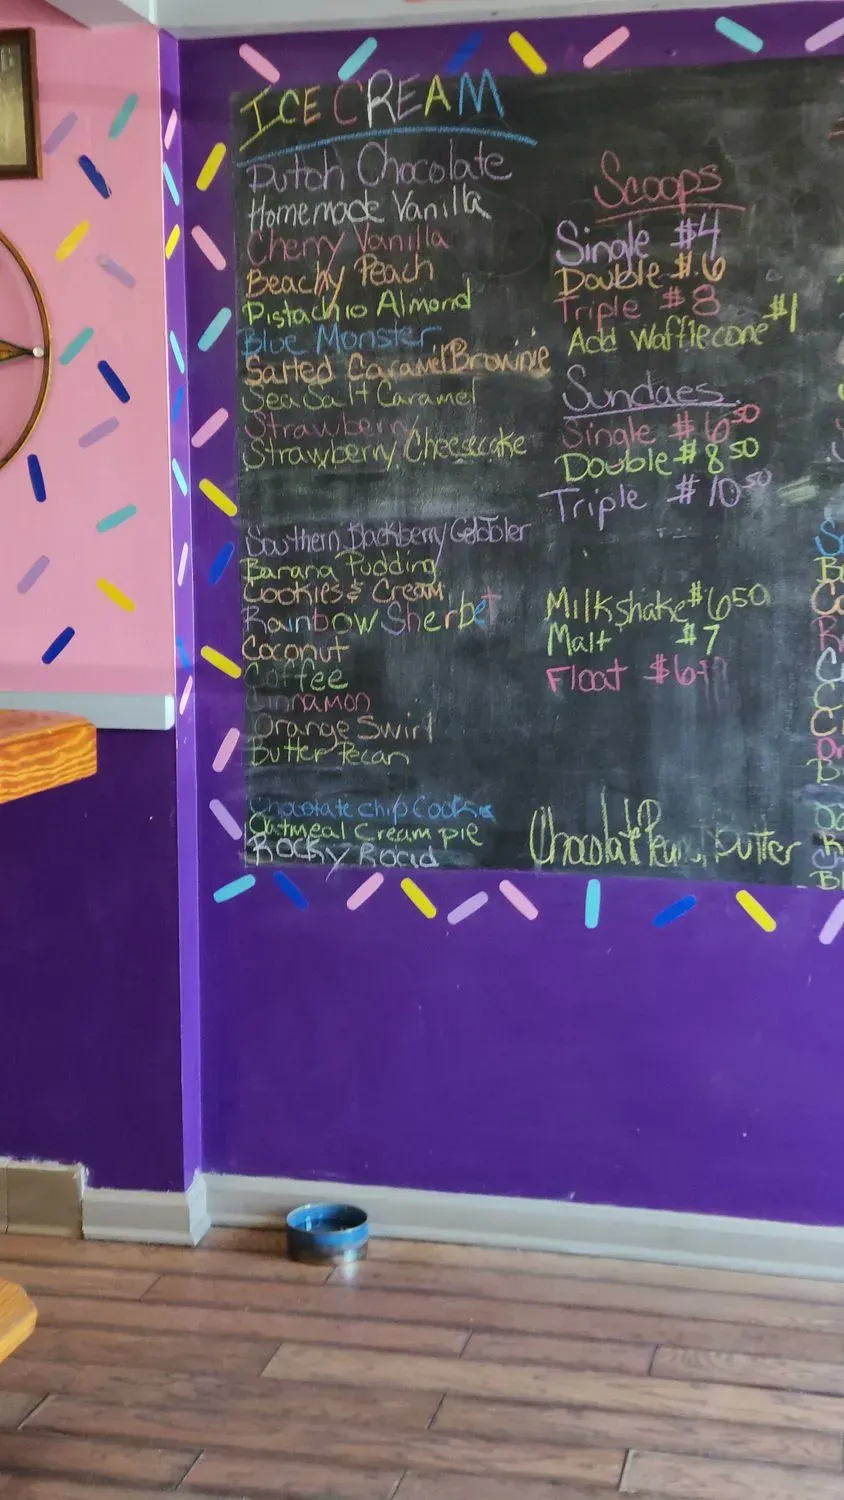 ICE CREAM
Dutch Chocolate
Homemade Vanilla
Cherry Vanilla
Beachy Peach
Pistachio Almond
Blue Monster
Salted Caramel Brownie
Sea Salt Caramel
Strawberry
Strawberry Cheesecake
Southern Backberry Cobbler
Banana Pudding
Cookies & Cream
Rainbow Sherbet
Coconut
Coffee
Cinnamon
Orange Swirl
Butter Pecan
Chocolate chip Cookie
Oatmeal Cream pie
Rocky Road
Scoops
Single $4
Double $6
Triple $8
Add Wafflecone $1
Sundaes
Single $6 50
Double $8 50
Triple $10 50
Milkshake $6 50
Malt $7
Float
Chocolate Butter